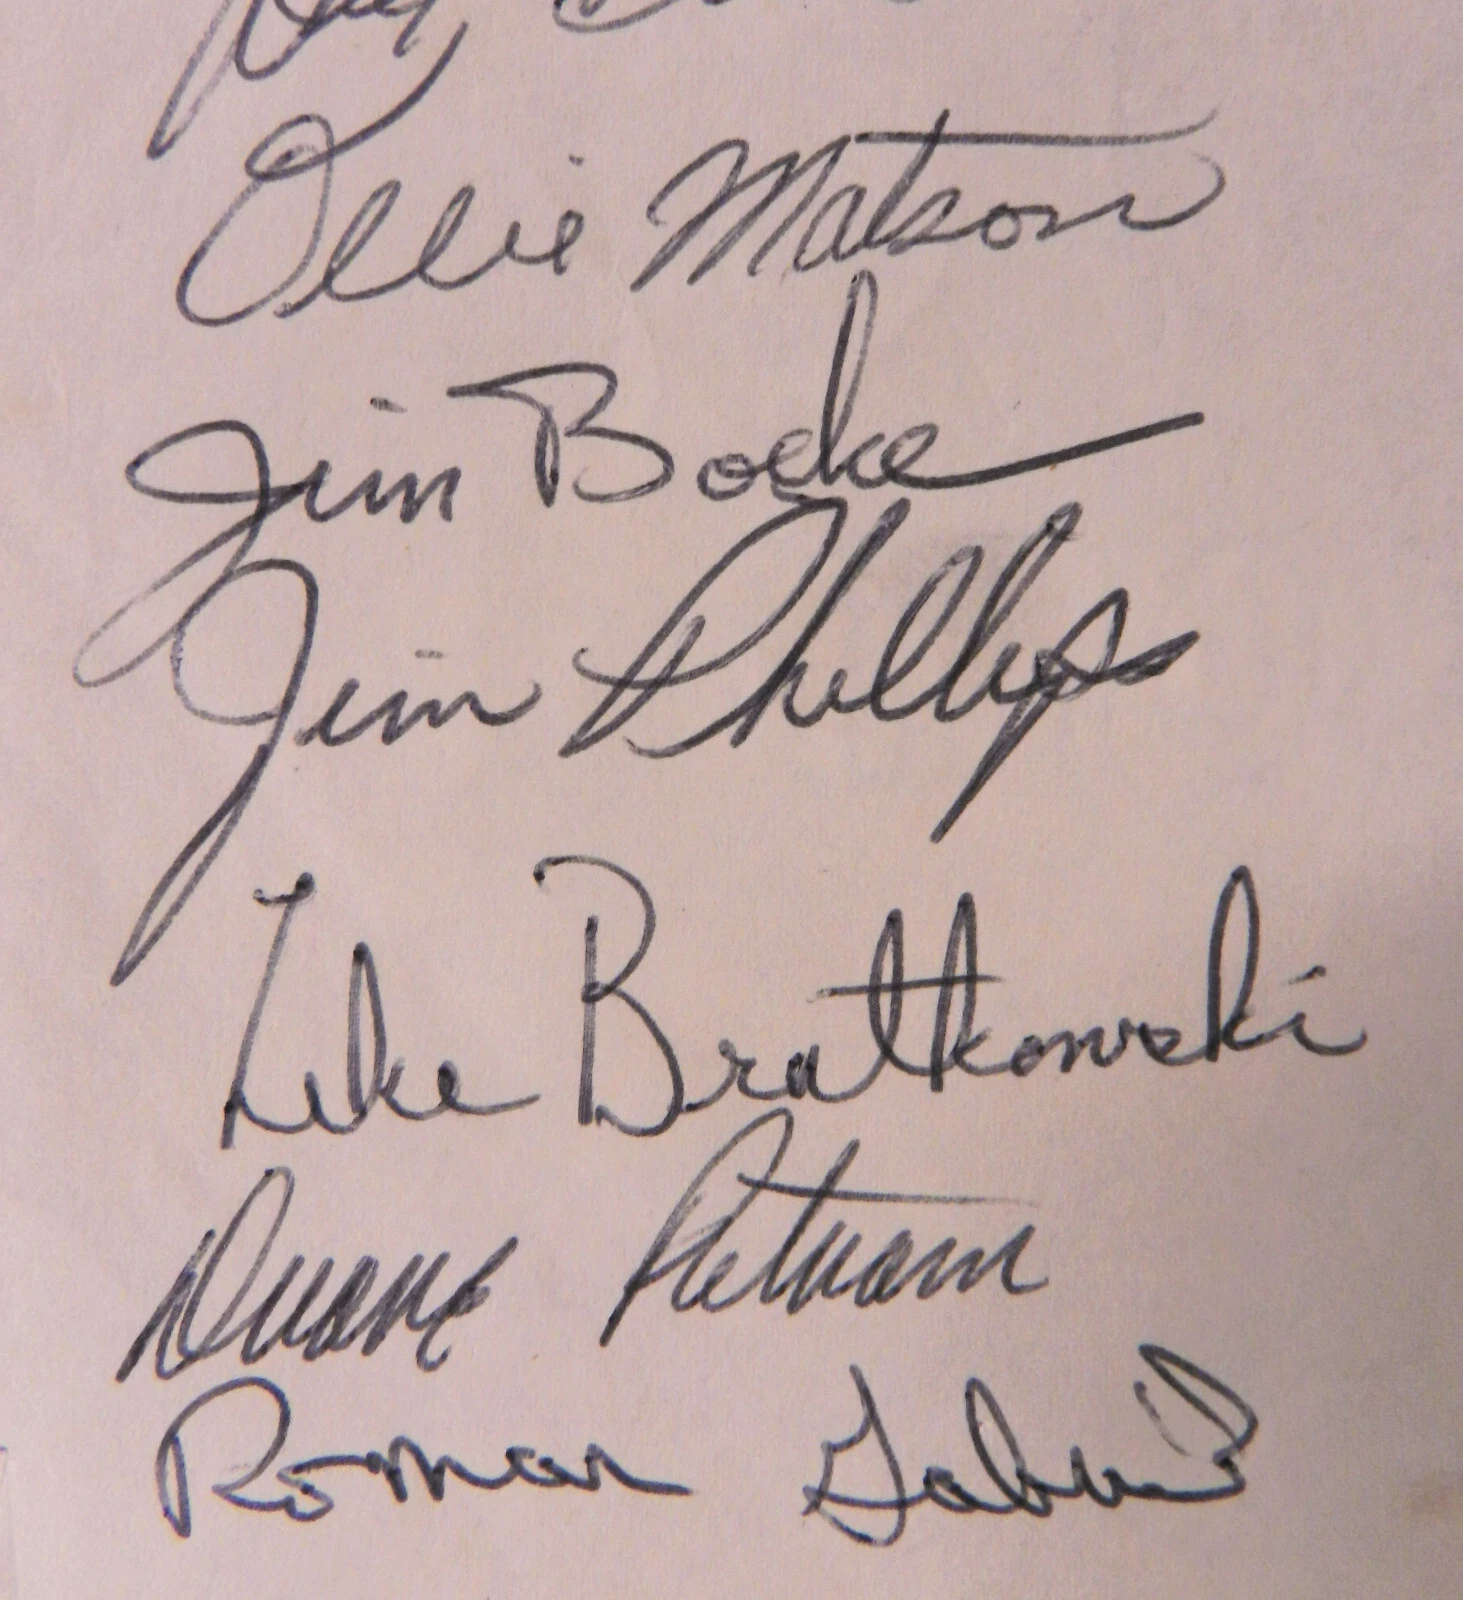 Ollie Matson
Jim Boeke
Jim Phillips
Zeke Bratkowski
Duane Putnam
Roman Gabriel